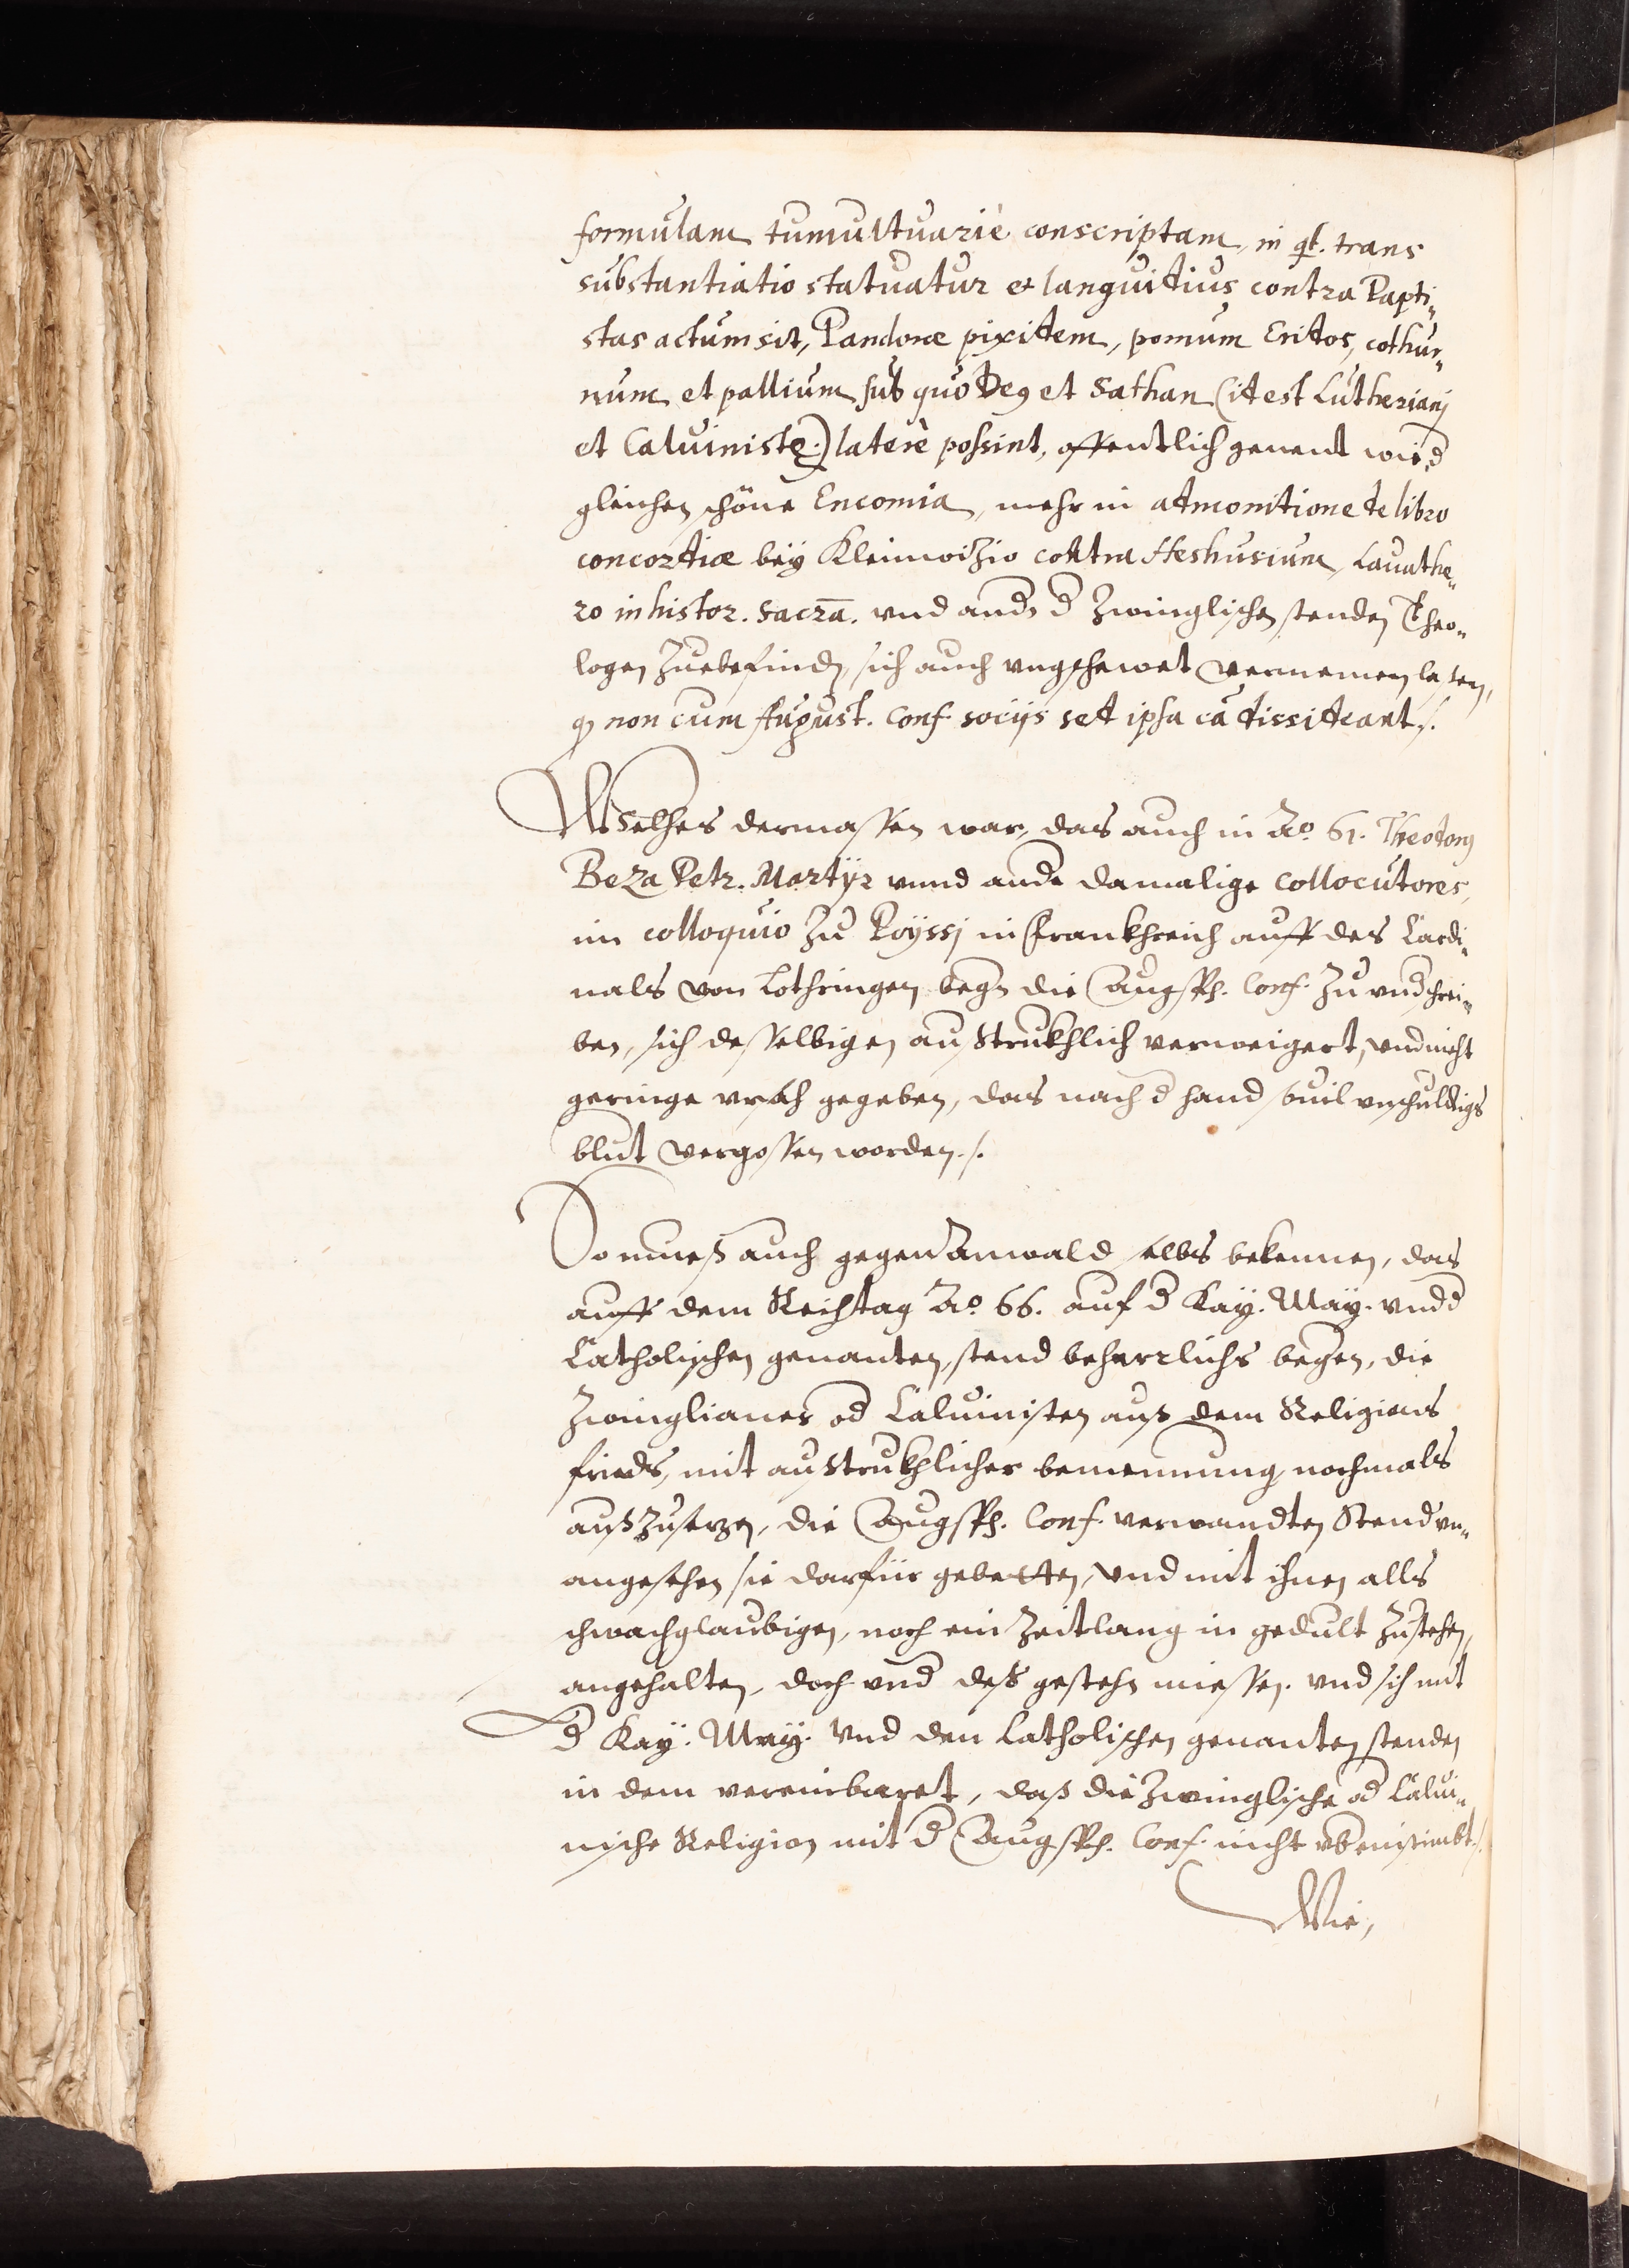 formulam tumultuariè conscriptam, in qͣ. trans
substantiatio statuatur et languidius contra Papi¬
stas actum sit, Pandoræ pixidem, pomum Eridos, cothur¬
num et pallium sub quo Deꝯ et Sathan (id est Lutheriani
et Caluinistę.) latere possint, offentlich genent wird
gleichen schöne Encomia, mehr in admonitione de libro
concordiæ bey Kleinwizio contra Heshusium, Lauathe¬
ro in histor. sacra. vnd andr d Zwinglischen stenden Theo¬
logen zuebefinden, sich auch vngschewet vernemen lassen,
qꝫ non cum August. Conf. socijs sed ipsa cā dissideant ./.
Welches dermassen war, das auch in Ao. 61. Theodorꝯ
Beza Petr. Martÿr vnnd andr damalige collocutores,
im colloquio zu Poÿssj in Frankhreich auff des Cardi¬
nals von Lothringen begern die Augsph. Conf. zu vndschrei¬
ben, sich desselbigen austrukhlich verweigert, vnd nicht
geringe vrsach gegeben, das nach d hand souil vnschuldigs
blut vergossen worden ./.
So mueß auch gegen Anwald selbs bekennen, das
auff dem Reichstag Ao. 66. auf d Kaÿ. Maÿ. vnd d
Catholischen genanten stend beharrlichs begern, die
Zwinglianer od Caluinisten auß dem Religions
frieds, mit austrukhlicher benennung nochmals
außzusezen, die Augsph. Conf. verwandten Stend vn¬
angesehen sie darfür gebetten, vnd mit ihnen alls
schwachglaubigen, noch ein Zeitlang in gedult zustehen,
angehalten, doch vnd deß gestehn miessen. vnd sich mit
d Kaÿ. Maÿ. vnd den Catholischen genanten stenden
in dem vereinbaret, daß die Zwinglische od Calui¬
nische Religion mit d Augsph. Conf. nicht vbereinstimbt ./.
Wie,